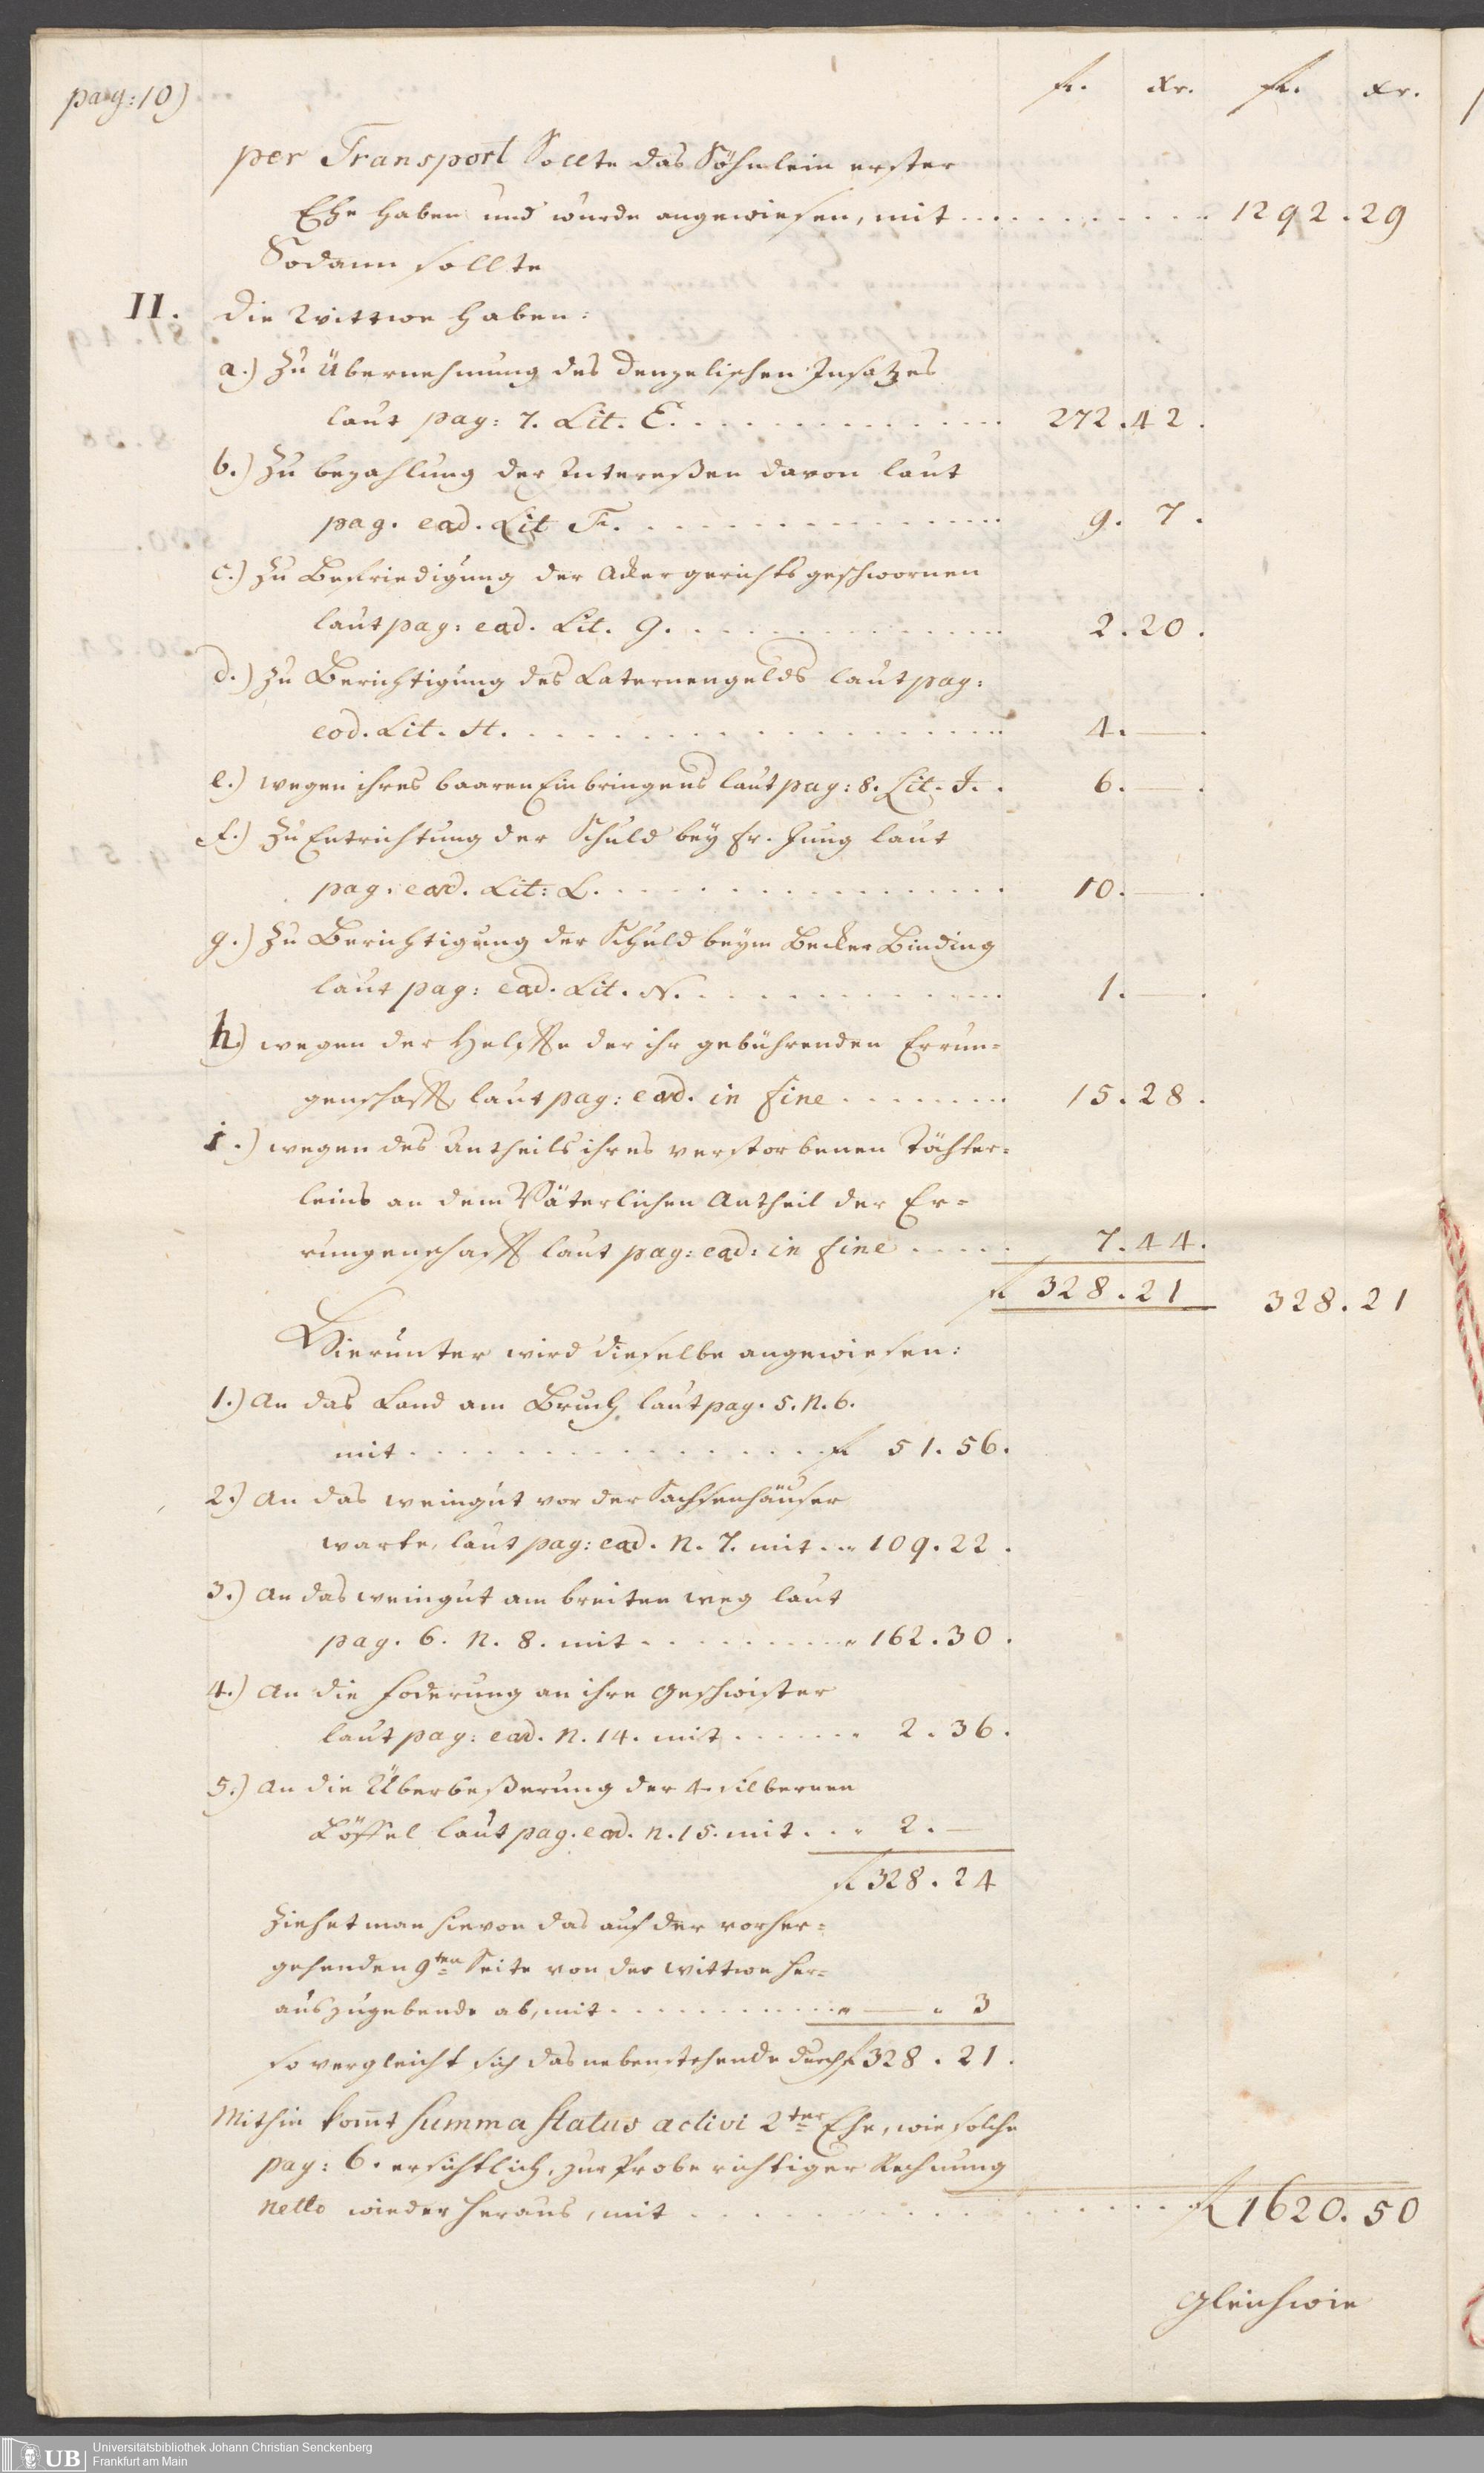 pag: 10)
fl. Xr. fl. Xr.
per Transport Sollte das Söhnlein erster
Ehe haben und wurde angewiesen, mit . . . . . . . . . . 1292. 29
Sodann sollte
II. die Wittwe haben:
a.) Zu Übernehmung des Denzelischen Insatzes
laut pag: 7. Lit. E. . . . . . . . . . . . 272. 42.
b.) Zu bezahlung der Intereßen davon laut
pag. ead. Lit F. . . . . . . . . . . . . 9. 7.
c.) zu Befriedigung der Ackergerichts geschwornen
laut pag: ead. Lit. G. . . . . . . . . . . . 2. 20.
d.) zu Berichtigung des Laternengelds laut pag:
eod. Lit. H. . . . . . . . . . . . . . . 4. — .
e.) wegen ihres baaren Einbringens laut pag: 8. Lit. I. . 6. — .
f.) Zu Entrichtung der Schuld bey Fr. Jung laut
pag. ead. Lit: L. . . . . . . . . . . . . 10. — .
g.) Zu Berichtigung der Schuld beym Becker Binding
laut pag: ead. Lit. N. . . . . . . . . . . . 1. — .
h.) wegen der Helffte der ihr gebührenden Errun=
genschafft, laut pag: ead. in fine . . . . . . . 15. 28.
i.) wegen des Antheils ihres verstorbenen Töchter=
leins an dem Väterlichen Antheil der Er=
rungenschafft laut pag: ead: in fine . . . . . 7. 44.
fl 328. 21 328. 21
Hierunter wird dieselbe angewiesen:
1.) An das Land am Bruch laut pag. 5. N. 6.
mit . . . . . . . . . . . . . . fl 51. 56.
2.) An das Weingut vor der Sachsenhäuser
Warte, laut pag: ead. N. 7. mit . . " 109. 22.
3.) An das Weingut am breiten Weg laut
pag. 6. N. 8. mit . . . . . . . . " 162. 30.
4.) An die Foderung an ihre Geschwister
laut pag: ead. N. 14. mit . . . . . " 2. 36.
5.) An die Überbeßerung der 4 silbernen
Löffel laut pag. ead. N. 15. mit . . " 2. —
fl 328. 24
Ziehet man hievon das auf der vorher=
gehenden 9ten Seite von der Wittwe her=
auszugebende ab, mit . . . . . . . . . . " — " 3
so vergleicht sich das nebenstehende durch fl 328. 21.
Mithin kom̅t Summa Status activi 2ter Ehe, wie solche
pag: 6. ersichtlich, zur Probe richtiger Rechnung
netto wieder heraus, mit . . . . . . . . . . . . . . . fl 1620. 50
Gleichwie
UB
Universitätsbibliothek Johann Christian Senckenberg
Frankfurt am Main